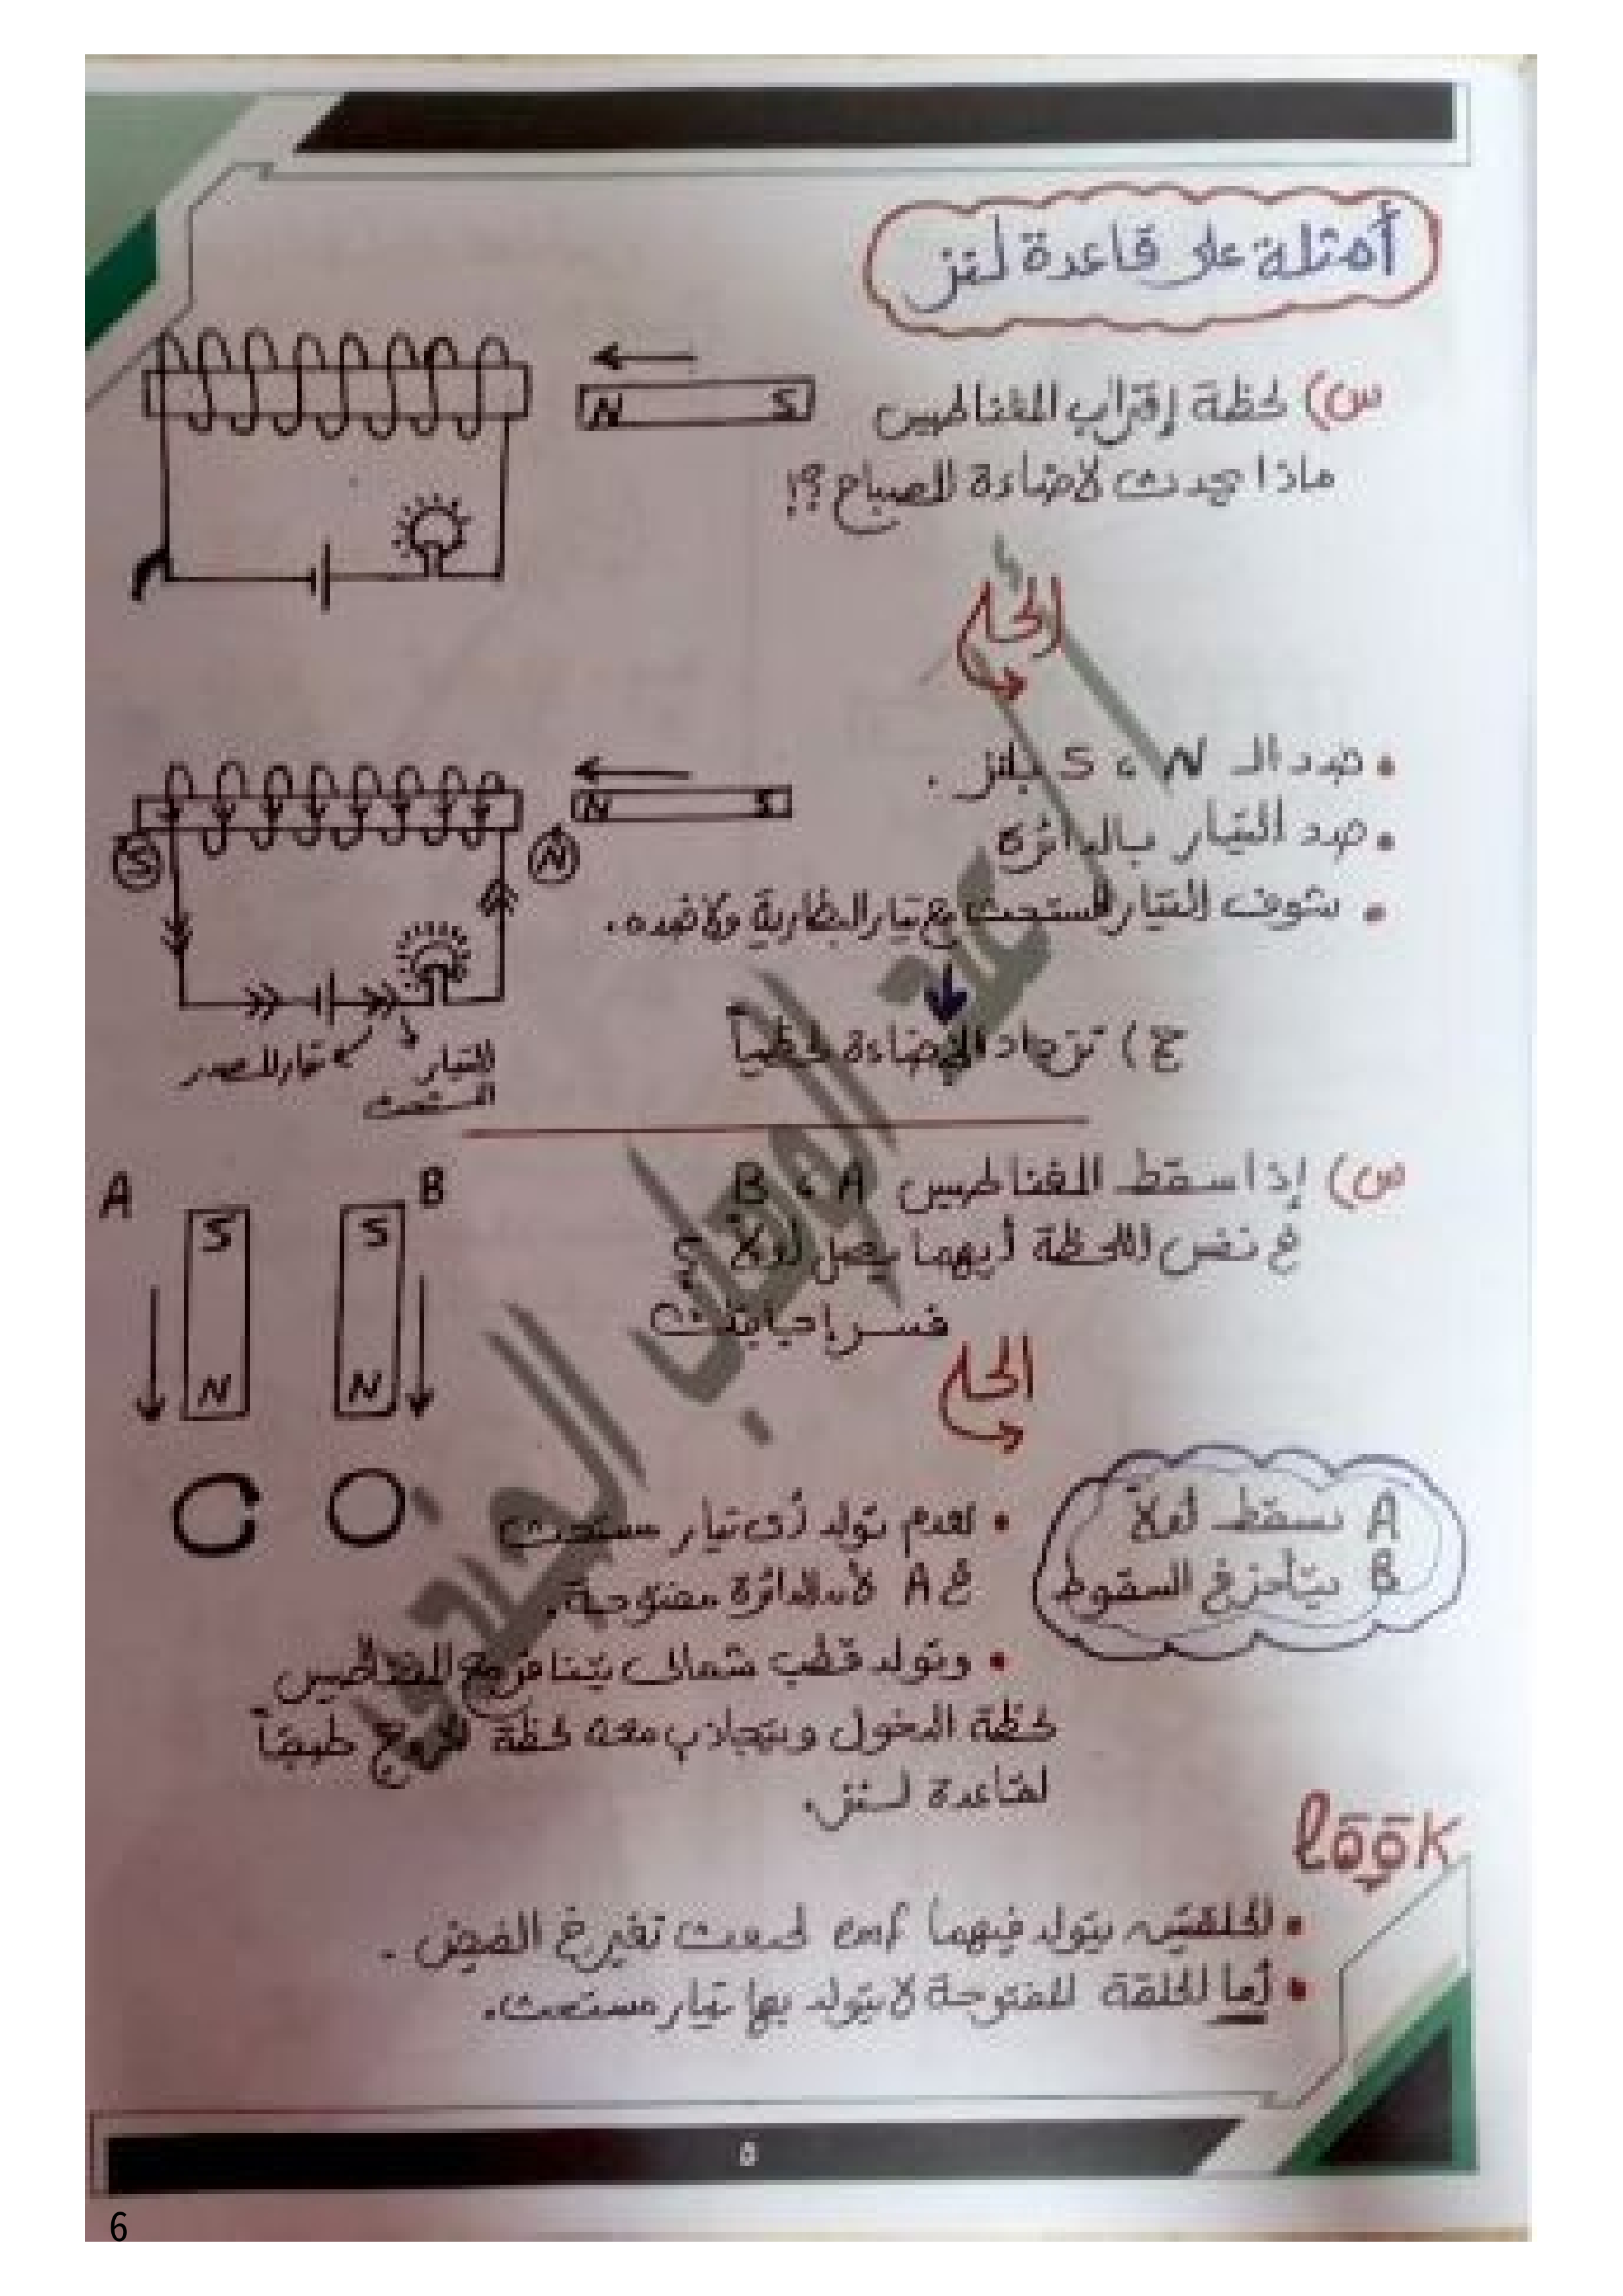 أمثلة على قاعدة لنز
س) لحظة إقتراب المغناطيس
ماذا يحدث لإضاءة المصباح؟!
N S
الحل
• حدد الـ N ، S بلنز .
• حدد التيار بالدائرة
• شوف التيار المستحث مع تيار البطارية ولا ضده.
N S
S N
ج) تزداد الإضاءة لحظياً
التيار المستحث
تيار المصدر
س) إذا سقط المغناطيسين A ، B
في نفس اللحظة أيهما يصل أولاً ؟
فسر إجابتك
A B
S S
N N
الحل
A يسقط أولاً
B يتأخر في السقوط
• لعدم تولد أى تيار مستحث
في A لأن الدائرة مفتوحة.
• وتولد قطب شمالى يتنافر مع المغناطيس
لحظة الدخول ويتجاذب معه لحظة الخروج طبقاً
لقاعدة لنز.
look
• الحلقتين يتولد فيهما emf تغير في الفيض .
• أما الحلقة المفتوحة لا يتولد بها تيار مستحث.
6
6